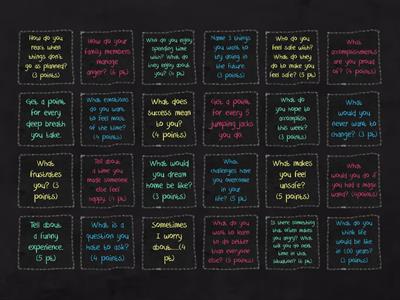 How do you
react when
things don't
go as planned?
(3 points)
How do your
family members
manage
anger? (6 pt)
Who do you enjoy
spending time
with? What do
you enjoy about
you? (4 pt)
Name 3 things
you want to
try doing in
the future.
(3 points)
Who do you
feel safe with?
What do they
do to make you
feel safe? (5 pt)
What
accomplishments
are you proud
of? (4 points)
Get a point
for every
deep breath
you take.
What emotions
do you want
to feel most
of the time?
(4 points)
What does
success mean to
you? (4
points)
Get a point
for every 5
jumping jacks
you do.
What do
you hope to
accomplish
this week?
(3 points)
What
would you
never want to
change? (3 pt)
What
frustrates
you? (3
points)
Tell about
a time you
made someone
else feel
happy. (4 pt)
What would
you dream
home be like?
(3 points)
What
challenges have
you overcome
in your
life? (5 pt)
What makes
you feel
unsafe? (5
points)
What would you
do if you had
a magic wand?
(4points)
Tell about
a funny
experience.
(5 pt)
What is a
question you
hate to ask?
(4 points)
Sometimes
I worry
about.....(4
pt)
What do you
want to learn
to do better
than everyone
else? (5 points)
Is there something
that often makes
you angry? What
will you do next
time in that
situation? (6 pt)
What do you
think life
would be like
in 100 years?
(3 points)